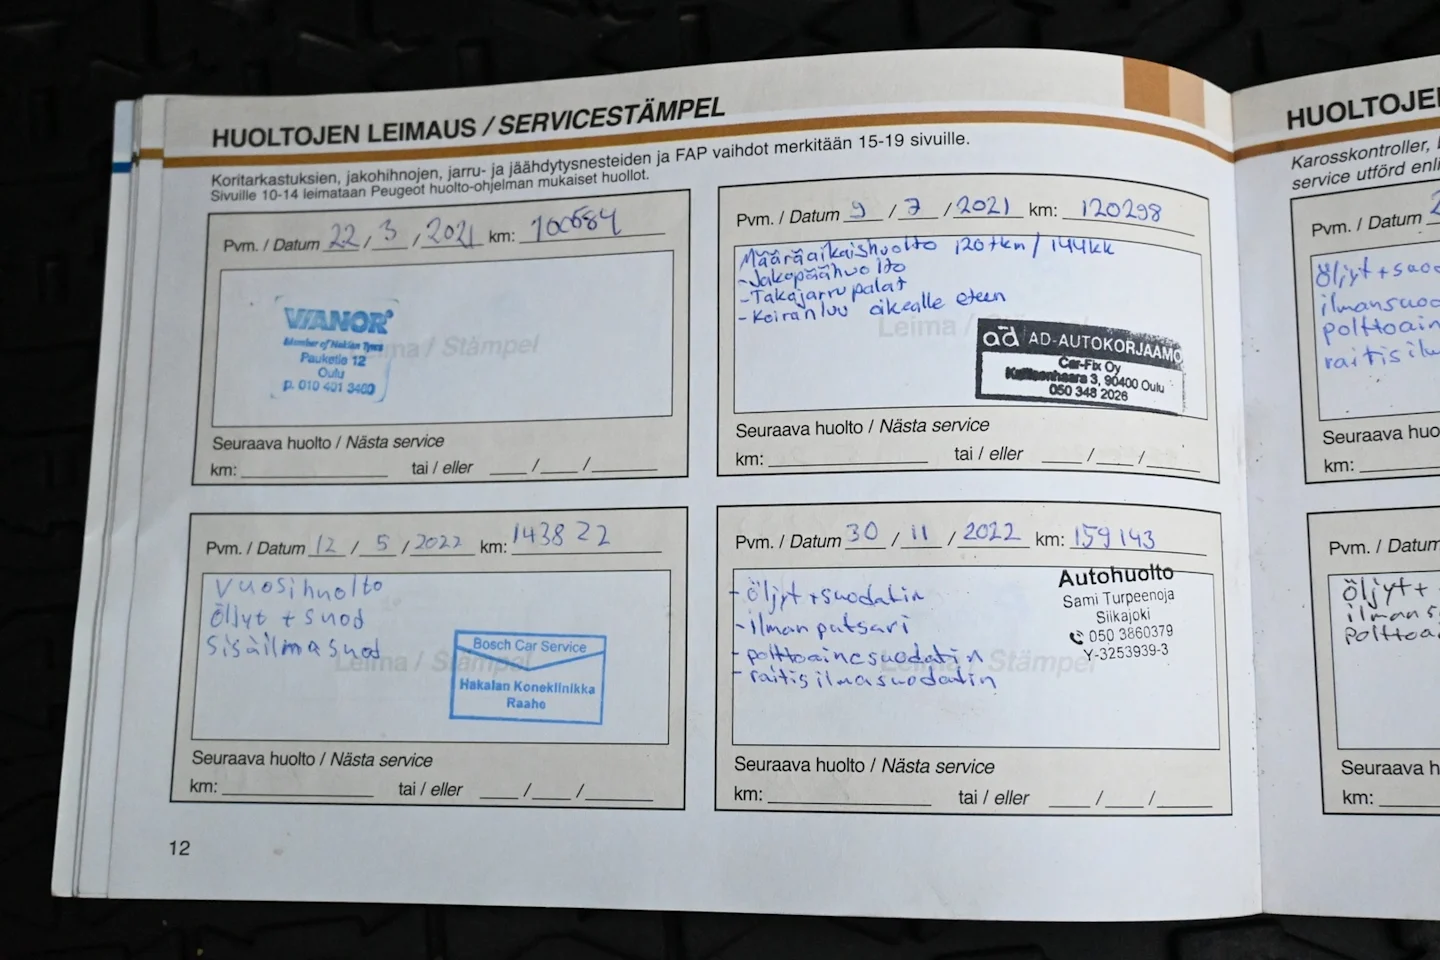 HUOLTOJEN LEIMAUS / SERVICESTÄMPEL
Koritarkastuksien, jakohihnojen, jarru- ja jäähdytysnesteiden ja FAP vaihdot merkitään 15-19 sivuille.
Sivuille 10-14 leimataan Peugeot huolto-ohjelman mukaiset huollot.
Pvm. / Datum 22 / 3 / 2021 km: 100684
VIANOR
Member of Nokian Tyres
Pauketie 12
Oulu
p. 010 401 3460
Leima / Stämpel
Seuraava huolto / Nästa service
km: tai / eller / /
Pvm. / Datum 9 / 7 / 2021 km: 120298
Määräaikaishuolto 120tkm / 144kk
- Jakopäähuolto
- Takajarrupalat
- Koiranluu oikealle eteen
Leima /
ad AD-AUTOKORJAAMO
Car-Fix Oy
3, 90400 Oulu
050 348 2026
Seuraava huolto / Nästa service
km: tai / eller / /
Pvm. / Datum 12 / 5 / 2022 km: 143822
Vuosihuolto
Öljyt + suod
Sisäilmasuod
Leima / Stämpel
Bosch Car Service
Hakalan Koneklinikka
Raahe
Seuraava huolto / Nästa service
km: tai / eller / /
Pvm. / Datum 30 / 11 / 2022 km: 159143
- öljyt + suodatin
- ilmanpatsari
- polttoainesuodatin
- raitisilmasuodatin
Leima / Stämpel
Autohuolto
Sami Turpeenoja
Siikajoki
050 3860379
Y-3253939-3
Seuraava huolto / Nästa service
km: tai / eller / /
12
HUOLTOJE
Karosskontroller,
service utförd enl
Pvm. / Datum 2
öljyt + suo
ilmansuo
polttoain
raitisil
Seuraava huo
km:
Pvm. / Datum
öljyt +
ilmans
polttoa
Seuraava h
km: